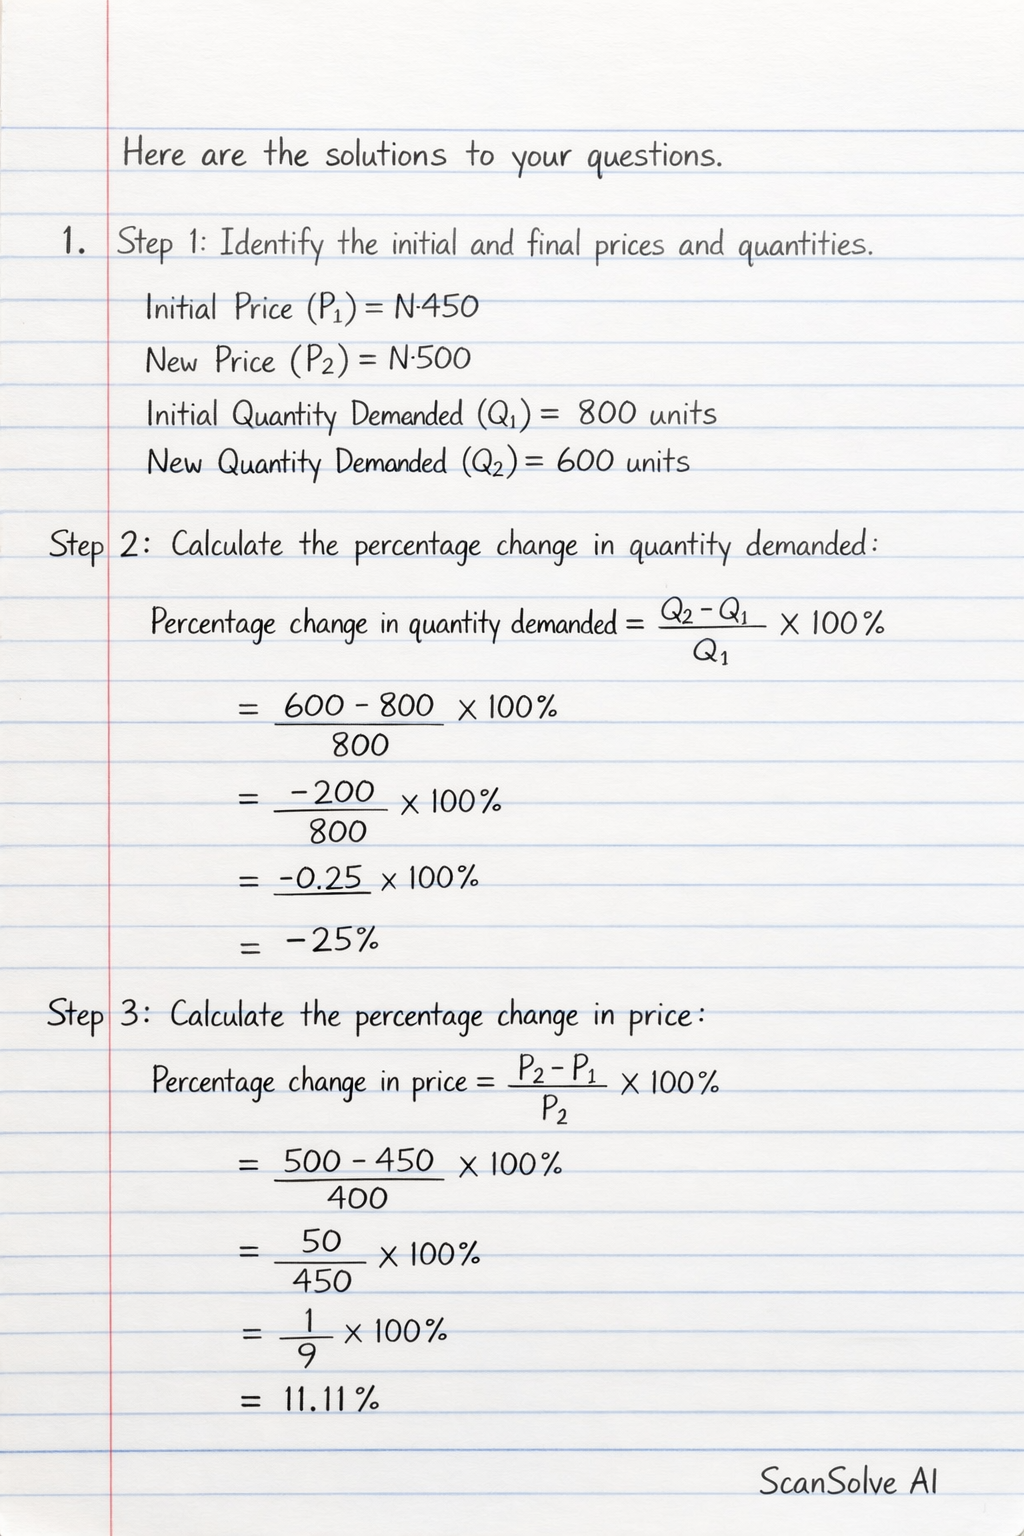 Here are the solutions to your questions.
1. Step 1: Identify the initial and final prices and quantities.
Initial Price (P₁) = N·450
New Price (P₂) = N·500
Initial Quantity Demanded (Q₁) = 800 units
New Quantity Demanded (Q₂) = 600 units
Step 2: Calculate the percentage change in quantity demanded:
Percentage change in quantity demanded = (Q₂ - Q₁)/Q₁ × 100%
= (600 - 800)/800 × 100%
= -200/800 × 100%
= -0.25 × 100%
= -25%
Step 3: Calculate the percentage change in price:
Percentage change in price = (P₂ - P₁)/P₂ × 100%
= (500 - 450)/400 × 100%
= 50/450 × 100%
= 1/9 × 100%
= 11.11%
ScanSolve AI